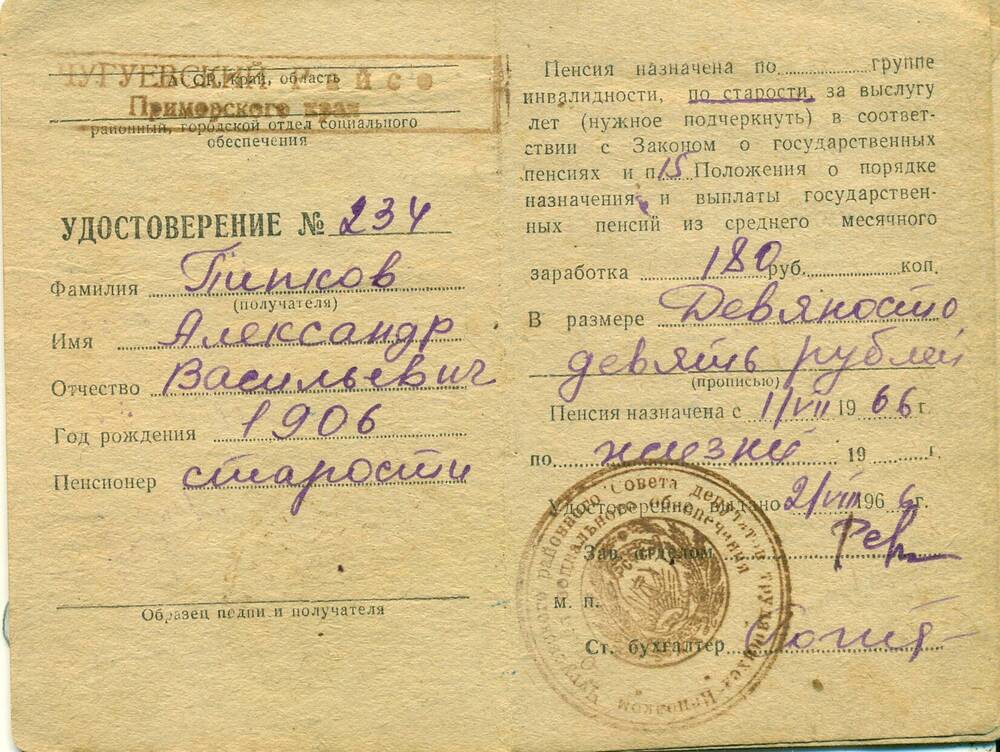 ЧУГУЕВСКИЙ Райсо
АССР, край, область
Приморского края
районный, городской отдел социального
обеспечения
УДОСТОВЕРЕНИЕ № 234
Фамилия Пипков
(получателя)
Имя Александр
Отчество Васильевич
Год рождения 1906
Пенсионер старости
Образец подписи получателя
Пенсия назначена по группе
инвалидности, по старости, за выслугу
лет (нужное подчеркнуть) в соответ-
ствии с Законом о государственных
пенсиях и п. 15 Положения о порядке
назначения и выплаты государствен-
ных пенсий из среднего месячного
заработка 180 руб. коп.
В размере Девяносто
девять рублей
(прописью)
Пенсия назначена с 1/VII 1966 г.
по жизни 19 г.
Удостоверение выдано 2/VIII 1966 г.
Зав. отделом
м. п.
Ст. бухгалтер
районного Совета депутатов трудящихся
социального обеспечения